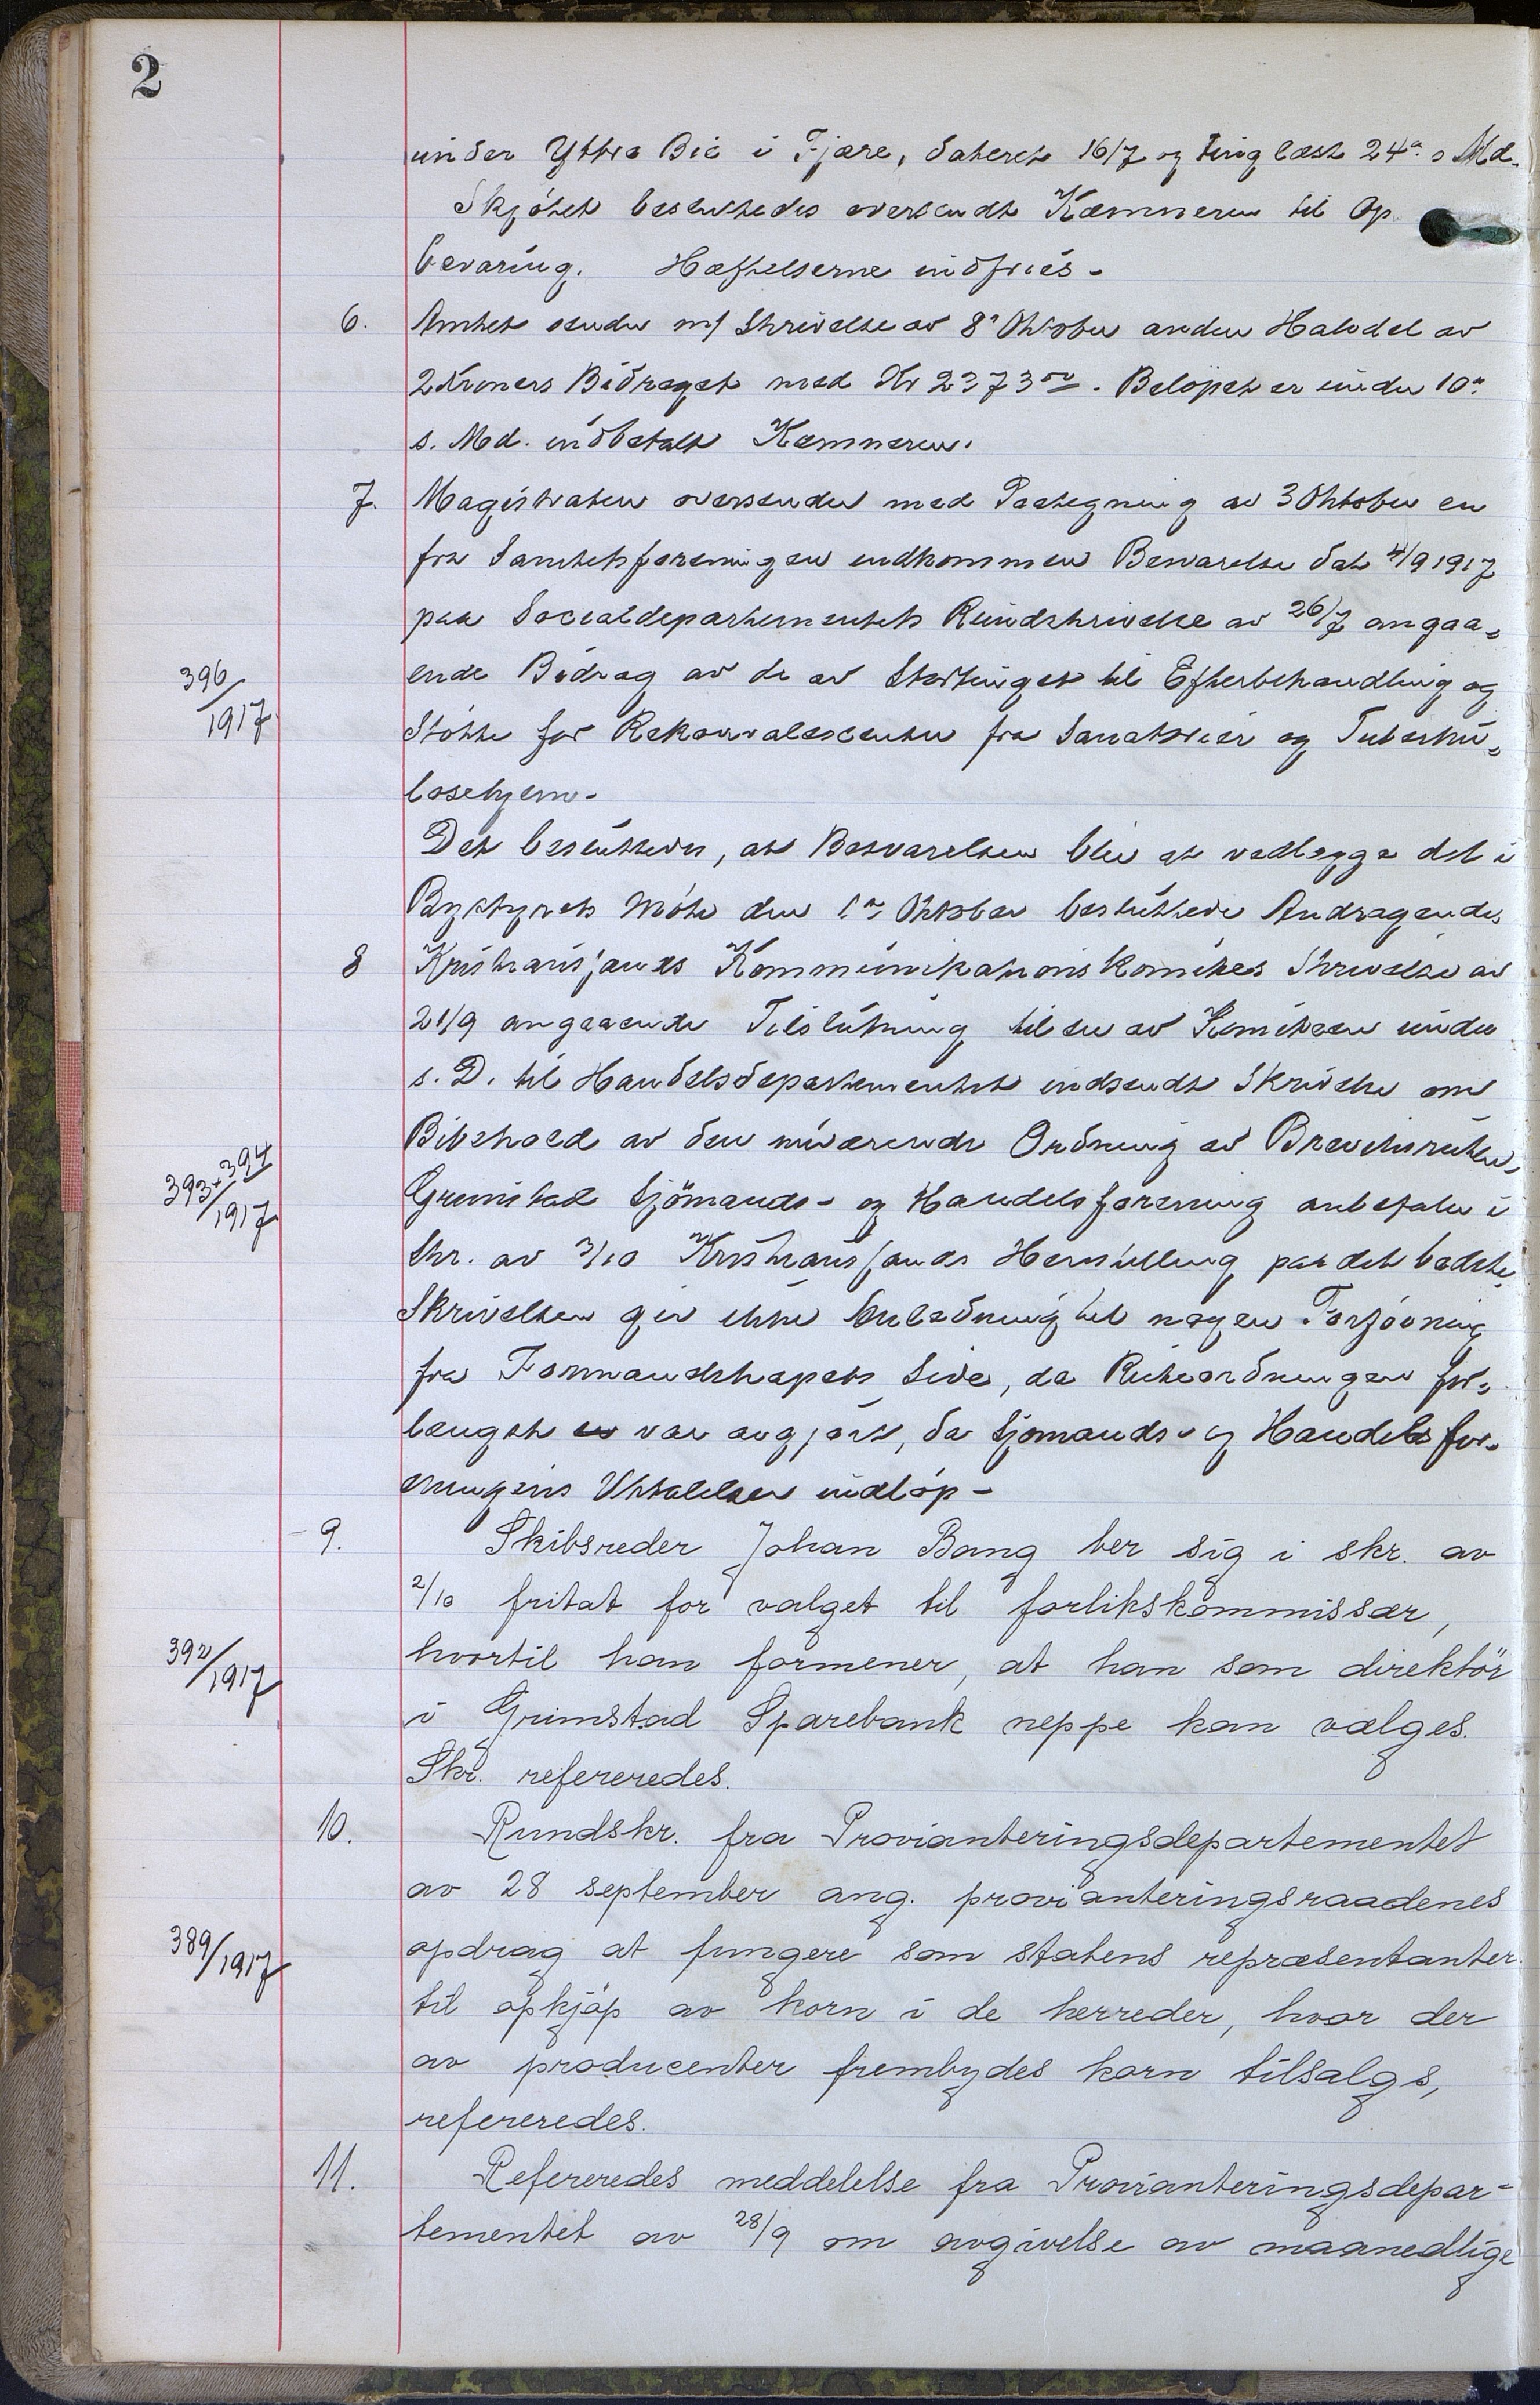 2
under Yttre Bie i Fjære, dateret 16/7 og tinglæst 24de s Md.
Skjötet besluttedes oversendt Kæmneren til Op
bevaring. Hæftelserne indfries -
6. Amtet sender m/ Skrivelse av 8de Oktober anden Halvdel av
2 Kroners Bidraget med Kr 2373 00. Belöpet er under 10de
s. Md. indbetalt Kæmneren.
7. Magistraten oversender med Paategning av 3 Oktober en
fra Sanitetsforeningen indkommen Besvarelse dat 4/9 1917
paa Socialdepartementets Rundskrivelse av 26/7 angaa-
396/1917
ende Bidrag av de av Stortinget til Efterbehandling og
Stötte for Rekonvalescenter fra Sanatorier og Tuberku-
losehjem -
Det besluttedes, at Besvarelsen blir at vedlægge det i
Bystyrets Möte den 1ste Oktober besluttede Andragende
8 Kristiansands Kommunikationskomites Skrivelse av
21/9 angaaende Tilslutning til en av Komiteen under
s. D. til Handelsdepartementet indsendt Skrivelse om
Bibehold av den nuværende Ordning av Breviksruten,
393+394/1917
Grimstad Sjömands- og Handelsforening anbefaler i
Skr. av 3/10 Kristiansands Henstilling paa det bedste,
Skrivelsen gir ikke Anledning til nogen Forföining
fra Formandskapets Side, da Ruteordningen for-
længst er var avgjort, da Sjömands- og Handelsfor-
eningens Uttalelse indlöp -
9. Skibsreder Johan Bang ber sig i skr. av
2/10 fritat for valget til forlikskommissær,
392/1917
hvortil han formener, at han som direktör
i Grimstad Sparebank neppe kan vælges.
Skr. refereredes.
10. Rundskr. fra Provianteringsdepartementet
av 28 september ang. provianteringsraadenes
389/1917
opdrag at fungere som statens repræsentanter
til opkjöp av korn i de herreder, hvor der
av producenter frembydes korn tilsalgs,
refereredes.
11. Refereredes meddelelse fra Provianteringsdepar-
tementet av 28/9 om avgivelse av maanedlige